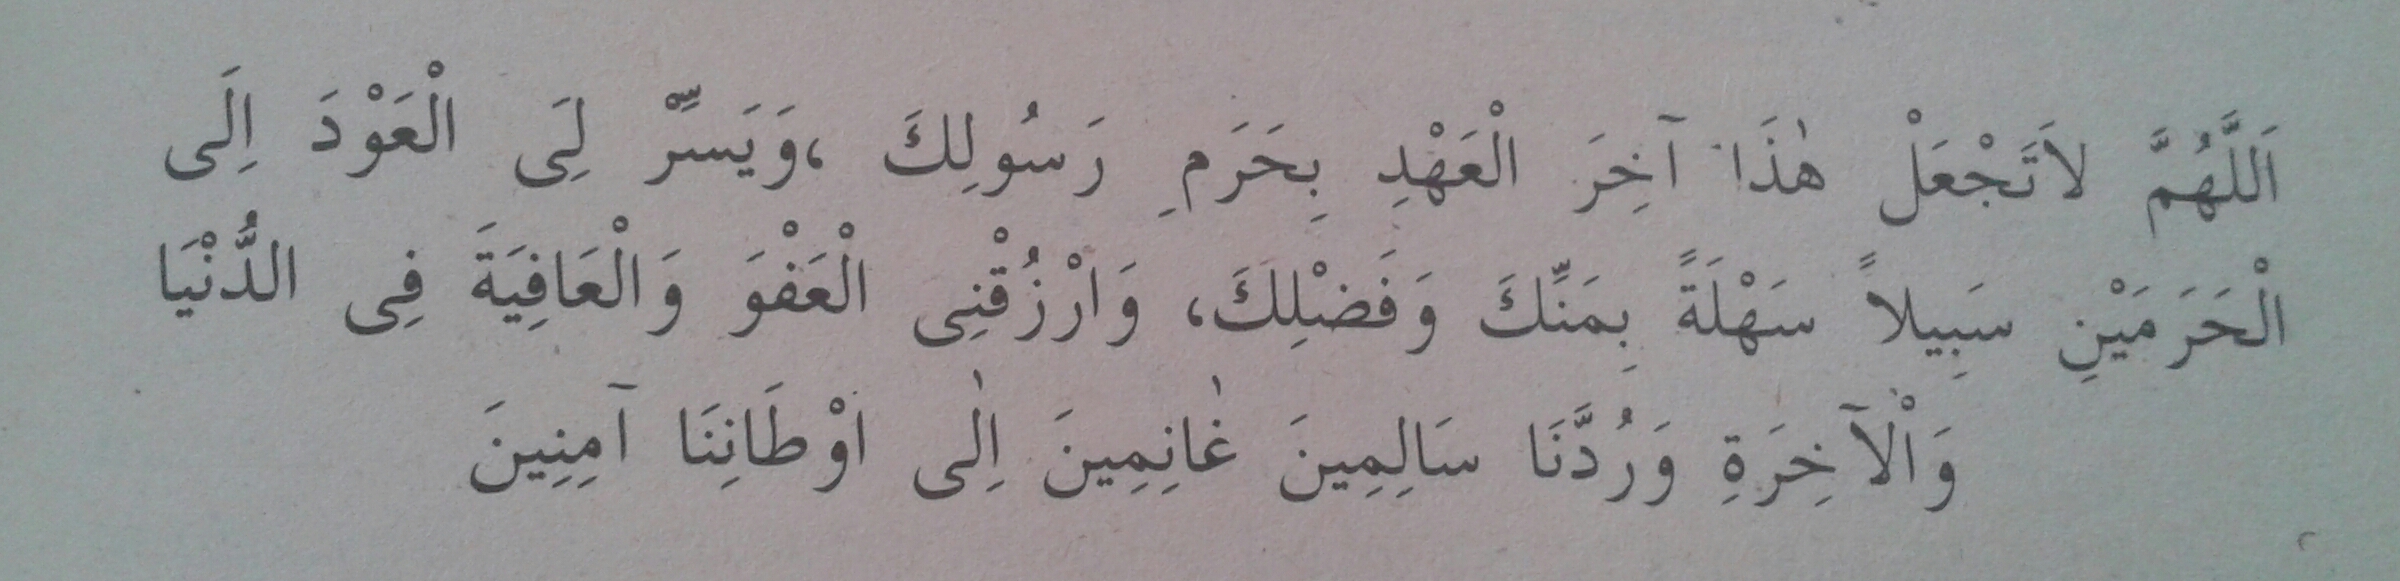 اَللَّهُمَّ لاَتَجْعَلْ هٰذَا آخِرَ الْعَهْدِ بِحَرَمِ رَسُولِكَ ،وَيَسِّرْ لِيَ الْعَوْدَ اِلَى
الْحَرَمَيْنِ سَبِيلاً سَهْلَةً بِمَنِّكَ وَفَضْلِكَ، وَارْزُقْنِى الْعَفْوَ وَالْعَافِيَةَ فِى الدُّنْيَا
وَالْآخِرَةِ وَرُدَّنَا سَالِمِينَ غٰانِمِينَ اِلٰى اوْطَانِنَا آمِنِينَ